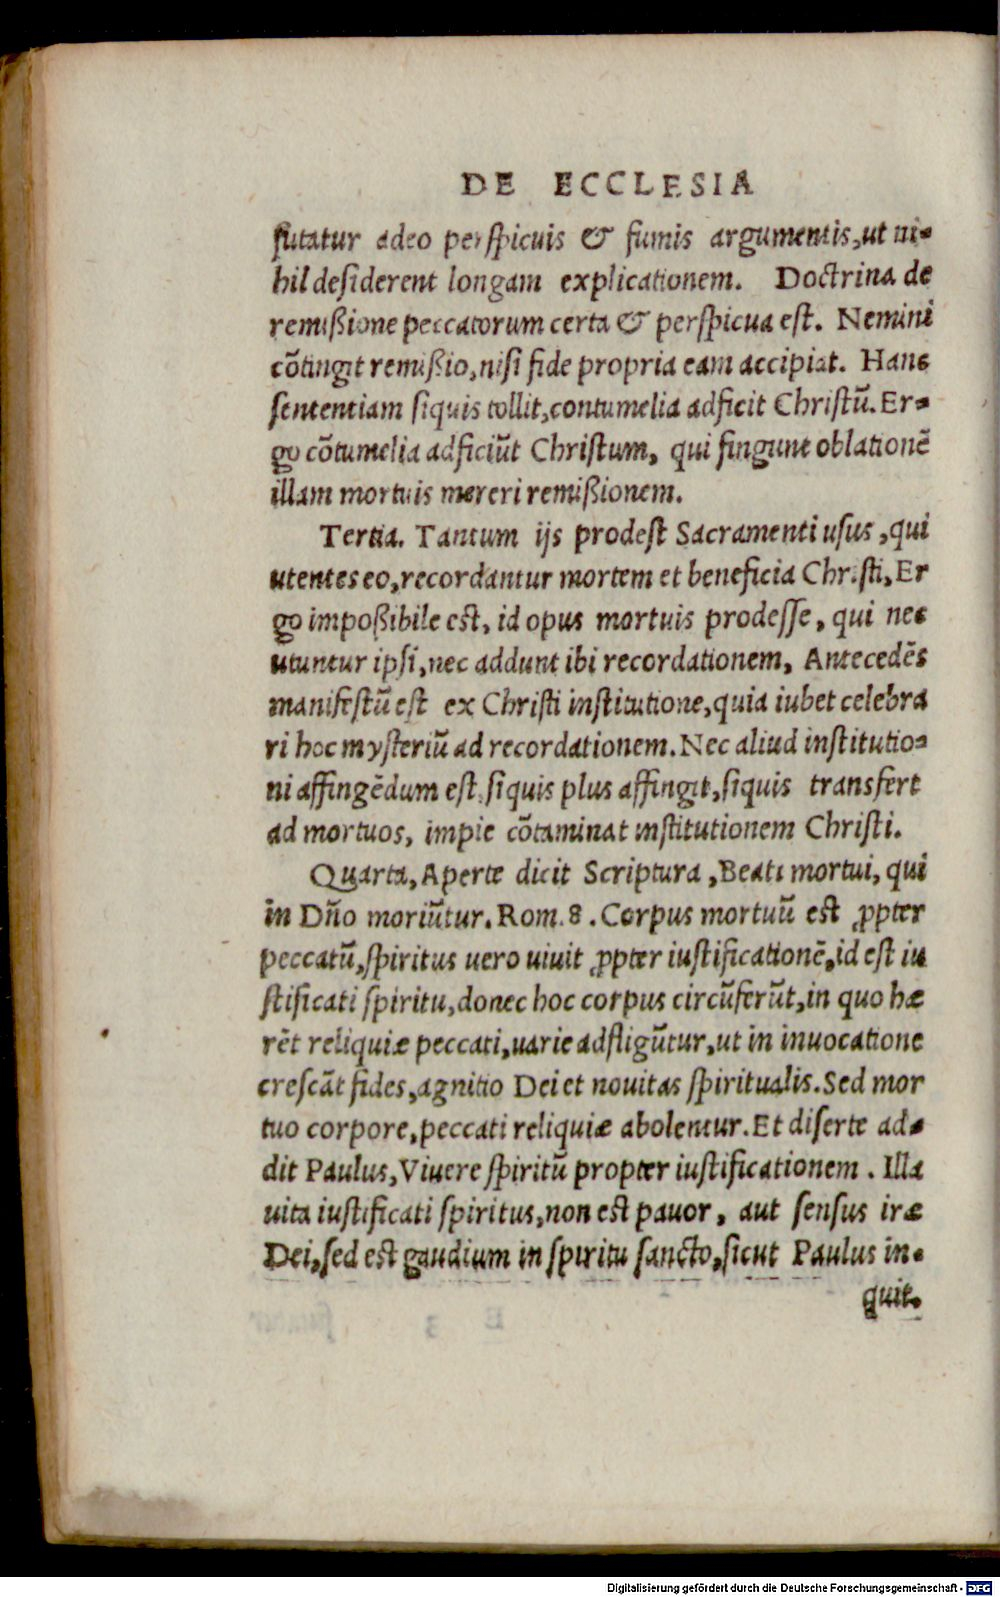 DE ECCLESIA
futatur adeo perspicuis & fumis argumentis, ut ni-
hil desiderent longam explicationem. Doctrina de
remißione peccatorum certa & perspicua est. Nemini
cõtingit remißio, nisi fide propria eam accipiat. Hanc
sententiam siquis tollit, contumelia adficit Christũ. Er-
go cõtumelia adficiũt Christum, qui fingunt oblationẽ
illam mortuis mereri remißionem.
Tertia. Tantum ijs prodest Sacramenti usus, qui
utentes eo, recordantur mortem et beneficia Christi, Er
go impoßibile est, id opus mortuis prodesse, qui nec
utuntur ipsi, nec addunt ibi recordationem, Antecedẽs
manifestũ est ex Christi institutione, quia iubet celebra
ri hoc mysteriũ ad recordationem. Nec aliud institutio-
ni affingẽdum est, siquis plus affingit, siquis transfert
ad mortuos, impie cõtaminat institutionem Christi.
Quarta, Aperte dicit Scriptura, Beati mortui, qui
in Dño moriũtur. Rom. 8. Corpus mortuũ est ꝓpter
peccatũ, spiritus uero uiuit ꝓpter iustificationẽ, id est iu
stificati spiritu, donec hoc corpus circũferũt, in quo hæ
rẽt reliquiæ peccati, uarie adfligũtur, ut in inuocatione
crescãt fides, agnitio Dei et nouitas spiritualis. Sed mor
tuo corpore, peccati reliquiæ abolentur. Et diserte ad-
dit Paulus, Viuere spiritũ propter iustificationem. Illa
uita iustificati spiritus, non est pavor, aut sensus iræ
Dei, sed est gaudium in spiritu sancto, sicut Paulus in-
quit.
Digitalisierung gefördert durch die Deutsche Forschungsgemeinschaft - DFG